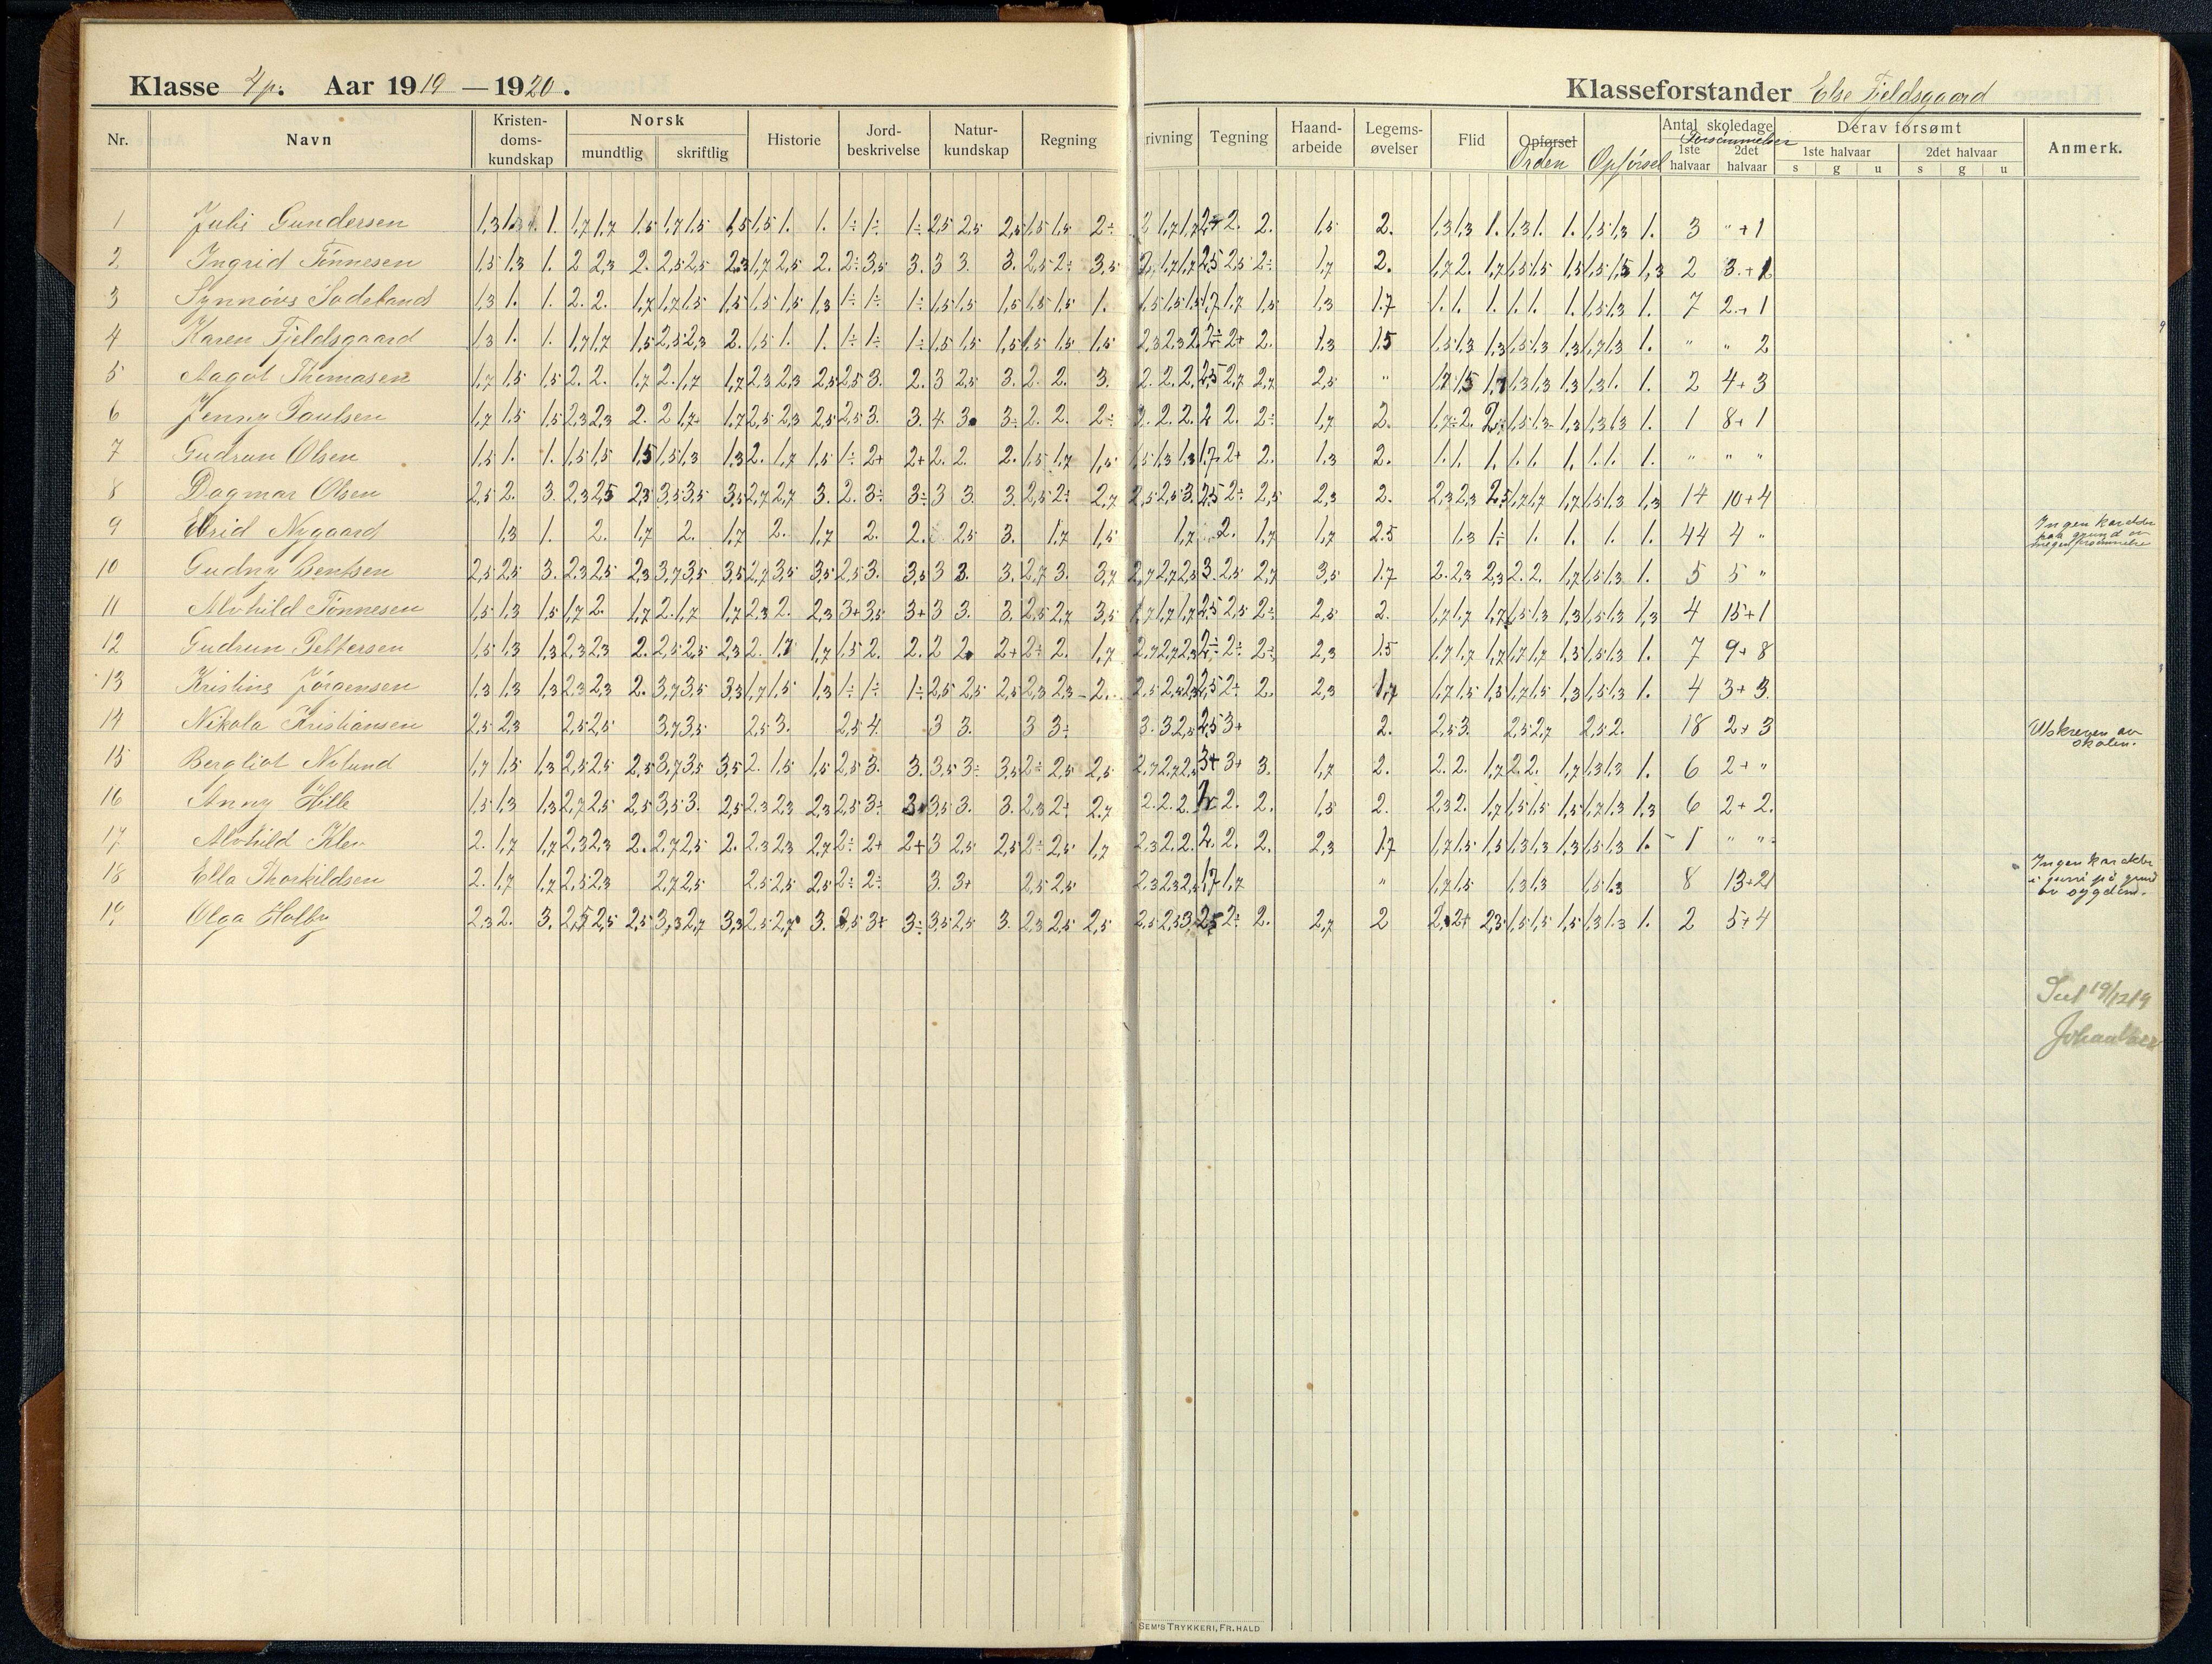 Klasse 4p. Aar 1919 — 1920.
Klasseforstander Else Fjeldsgaard
Nr. Navn Kristen-doms-kundskap Norsk mundtlig skriftlig Historie Jord-beskrivelse Natur-kundskap Regning rivning Tegning Haand-arbeide Legems-øvelser Flid Opførsel Orden Opførsel Antal skoledage Forsømmelser 1ste halvaar 2det halvaar Derav forsømt 1ste halvaar s g u 2det halvaar s g u Anmerk.
1 Juli Gundersen 1,5 2. 3 " + 1
2 Ingrid Tønnesen 1,5 1,3 1. 2 2,3 2. 2,5 2,5 2.3 1,7 2,5 2. 2÷ 3,5 3. 3 3. 3. 2,5 2÷ 3,5 1,7 2. 2 3. + 1
3 Synnøve Sødeland 1,3 1. 1. 2. 2. 1,7 1,7 1,5 1,5 1,5 1,5 1,3 1÷ 1÷ 1÷ 1,5 1,5 1,5 1,5 1,5 1. 1,3 1.7 1. 1. 1. 1. 1. 1. 1,5 1,3 1. 7 2. + 1
4 Karen Fjeldsgaard 1,3 1. 1. 1,7 1,7 1,5 2,5 2,3 2. 1,5 1. 1. 1÷ 1÷ 1÷ 1,5 1,5 1,5 1,5 1,5 1,5 1,3 1.5 1,5 1,3 1,3 1,5 1,3 1,3 1,7 1,3 1. " " 2
5 Aagot Thomasen 1,7 1,5 1,5 2. 2. 1,7 2. 1,7 1,7 2,3 2,3 2,5 2,5 3. 2. 3 2,5 3. 2. 2. 3. 2,5 " 2 4 + 3
6 Jenny Paulsen 1,7 1,5 1,5 2,3 2,3 2. 2 1,7 1,7 2,5 2,3 2,5 2,5 3. 3. 4. 3. 3÷ 2. 2. 2÷ 1,7 2. 1 8 + 1
7 Gudrun Olsen 1,5 1. 1. 1,5 1,5 1,5 1,5 1,3 1,3 2. 1,7 1,5 1÷ 2+ 2+ 2. 2. 2. 1,5 1,7 1,5 1,3 2. 1. 1. 1. 1. 1. 1. 1. 1. 1. " " "
8 Dagmar Olsen 2,5 2. 3. 2,3 2,5 2,3 3,5 3,5 3,5 2,7 2,7 3. 2. 3÷ 3÷ 3 3. 3. 2,5 2÷ 2,7 2,3 2. 2,3 2,3 2,5 1,7 1,7 1,7 1,5 1,3 1,3 14 10 + 4
9 Nygaard 1,3 1. 2. 1,7 2. 1,7 2. 1,7 2. 2. 2,5 3. 1,7 1,5 1,7 2. 1,7 1,7 2.5 1,3 1÷ 1. 1. 1. 1. 44 4 "
Ingen karakter
paa grund av
megen forsømmelse
10 Gudny Bentsen 2,5 2,5 3. 2,3 2,5 2,3 3,7 3,5 3,5 2,7 3,5 3,5 2,5 3. 3,5 3 3. 3. 2,7 3. 3,7 3,5 1.7 2. 2,3 2,3 2. 2. 1,7 1,5 1,3 1. 5 5 "
11 Alvhild Tønnesen 1,5 1,3 1,5 1,7 2. 1,7 2. 1,7 1,7 2,3 2. 2,3 3+ 3,5 3+ 3 3. 3. 2,5 2,7 3,5 2,5 2. 4 15 + 1
12 Gudrun Pettersen 1,5 1,3 1,3 2,3 2,3 2. 2,5 2,5 2,3 2. 1,7 1,7 1,5 2. 2. 2 2. 2+ 2÷ 2. 1,7 2,3 1.5 1,7 1,7 1,7 1,7 1,7 1,3 1,5 1,3 1. 7 9 + 8
13 Kristine Jørgensen 1,3 1,3 1,3 2,3 2,3 2. 3,7 3,5 3,3 1,7 1,5 1,3 1÷ 1÷ 1÷ 2,5 2,5 2,5 2,3 2,3 2. 2,3 1,7 1,7 1,5 1,3 1,7 1,5 1,3 1,5 1,3 1. 4 3 + 3
14 Nikola Kristiansen 2,5 2,3 2,5 2,5 3,7 3,5 2,5 3. 2,5 4. 3 3. 3 3÷ 2. 2,5 3. 2,5 2,7 2,5 2. 18 2 + 3
Utskreven av
skolen.
15 Bergliot Nylund 1,7 1,5 1,3 2,5 2,5 2,5 3,7 3,5 3,5 2. 1,5 1,5 2,5 3. 3. 3,5 3÷ 3,5 2÷ 2,5 2,5 1,7 2. 2. 2. 1,7 2. 2. 1,7 1,3 1,3 1. 6 2 + "
16 Anny Hille 1,5 1,3 1,3 2,7 2,5 2,5 3,5 3. 2,5 2,3 2,3 2,3 2,5 3÷ 3. 3,5 3. 3. 2,3 2÷ 2,7 1,5 2. 2,3 2. 1,7 1,5 1,5 1,5 1,7 1,3 1,3 6 2 + 2.
17 Alvhild Klev 2. 1,7 1,7 2,3 2,3 2. 2,7 2,5 2. 2,3 2,3 2,7 2÷ 2+ 2+ 3 2,5 2,5 2÷ 2,5 1,7 2,3 1.7 1,7 1,5 1,5 1,3 1,3 1,3 1,5 1,3 1. 1 " "
18 Ella Thorkildsen 2. 1,7 1,7 2,5 2,3 2,7 2,5 2,5 2,5 2,5 2÷ 2÷ 3. 3+ 2,5 2,5 " 1,7 1,5 1,3 1,3 1,5 1,3 8 13 + 21
Ingen karakter
i juni på grund
av sygdom.
19. Olga Holby 2,3 2. 3. 2,5 2,5 2,5 3,3 2,7 3,3 2,5 2,7 3. 2,5 3+ 3÷ 3,5 2,5 3. 2,3 2,5 2,5 2,7 2 2. 2+ 2,3 1,5 1,5 1,5 1,3 1,3 1. 2 5 + 4
19/12 19
SEM'S TRYKKERI, FR.HALD